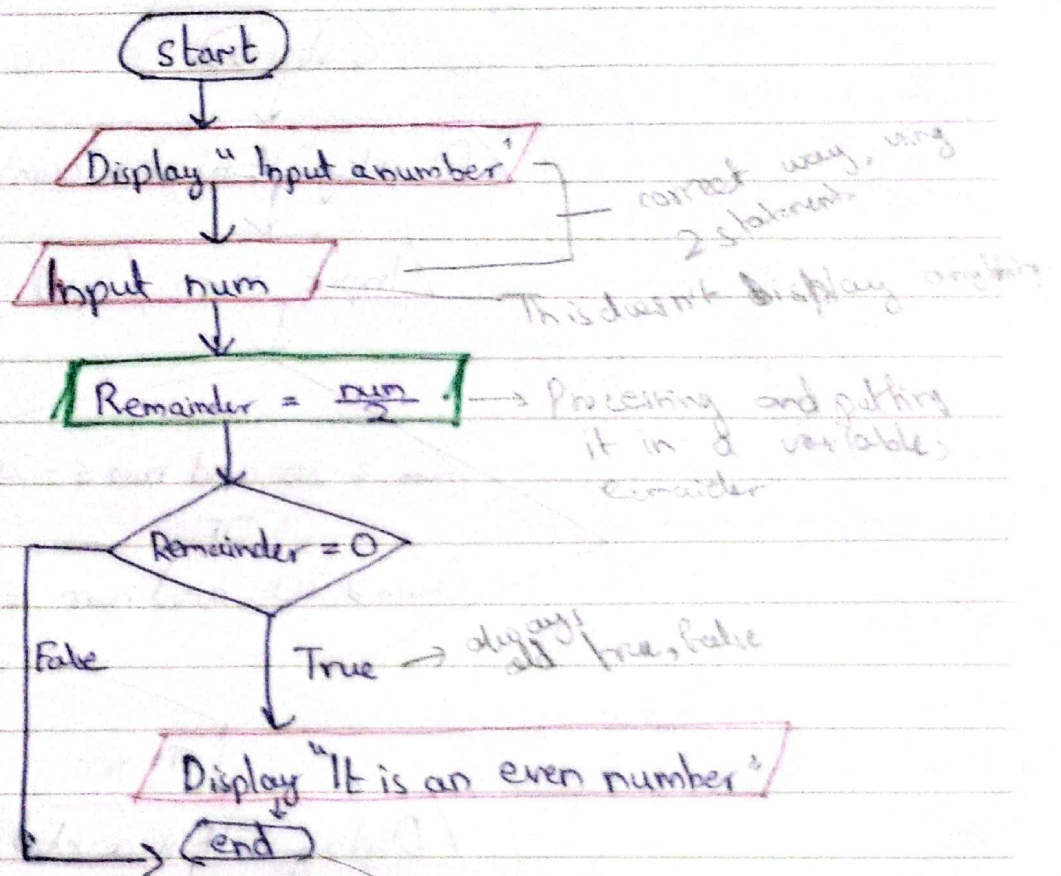 start
Display " Input a number"
correct way, using
2 statements
Input num
This doesn't Display anything
Remainder = num/2
→ Processing and putting
it in a variable,
remaider
Remainder = 0
False
True → always
add true, false
Display "It is an even number"
end